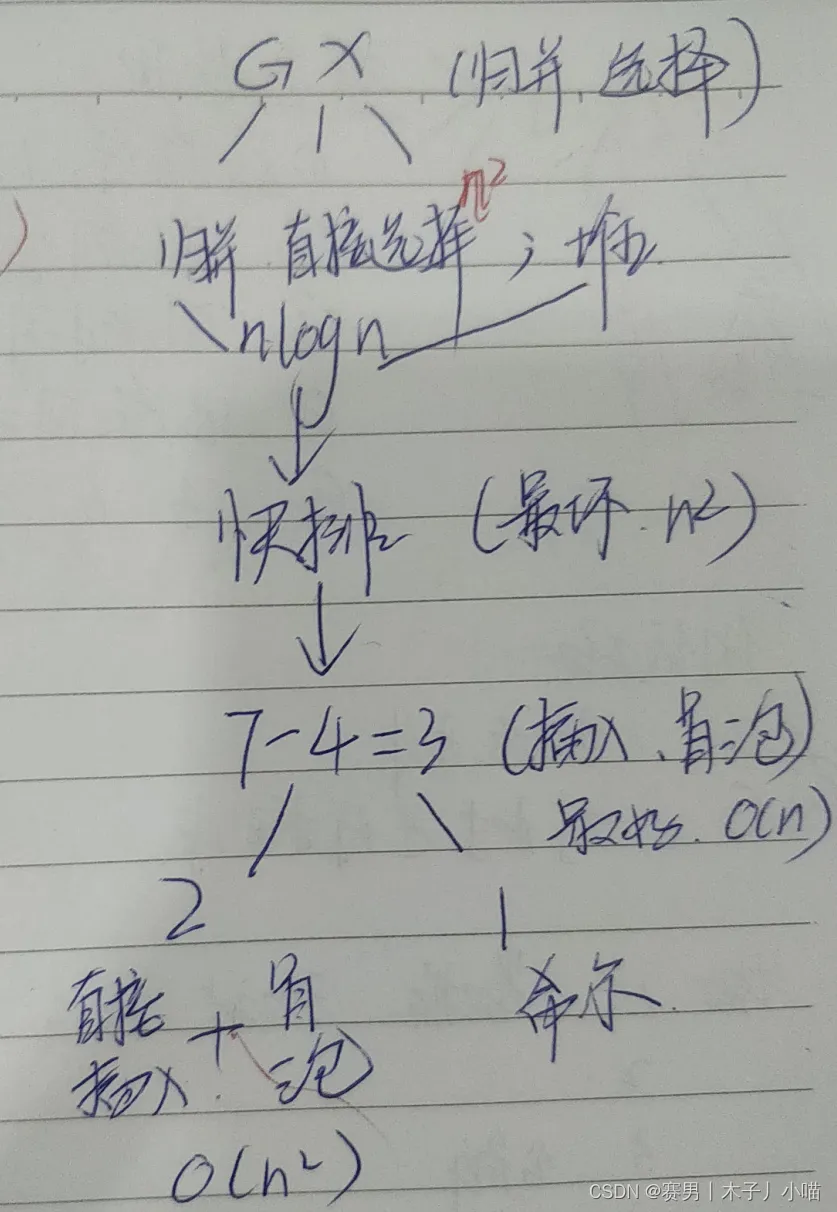 GX (归并、选择)
归并 直接选择 n² ; 堆
nlogn
快排 (最坏. n²)
7-4=3 (插入、冒泡)
最好. O(n)
2 1
直接 冒 希尔.
插入. + 泡
O(n²)
CSDN @赛男丨木子丿小喵